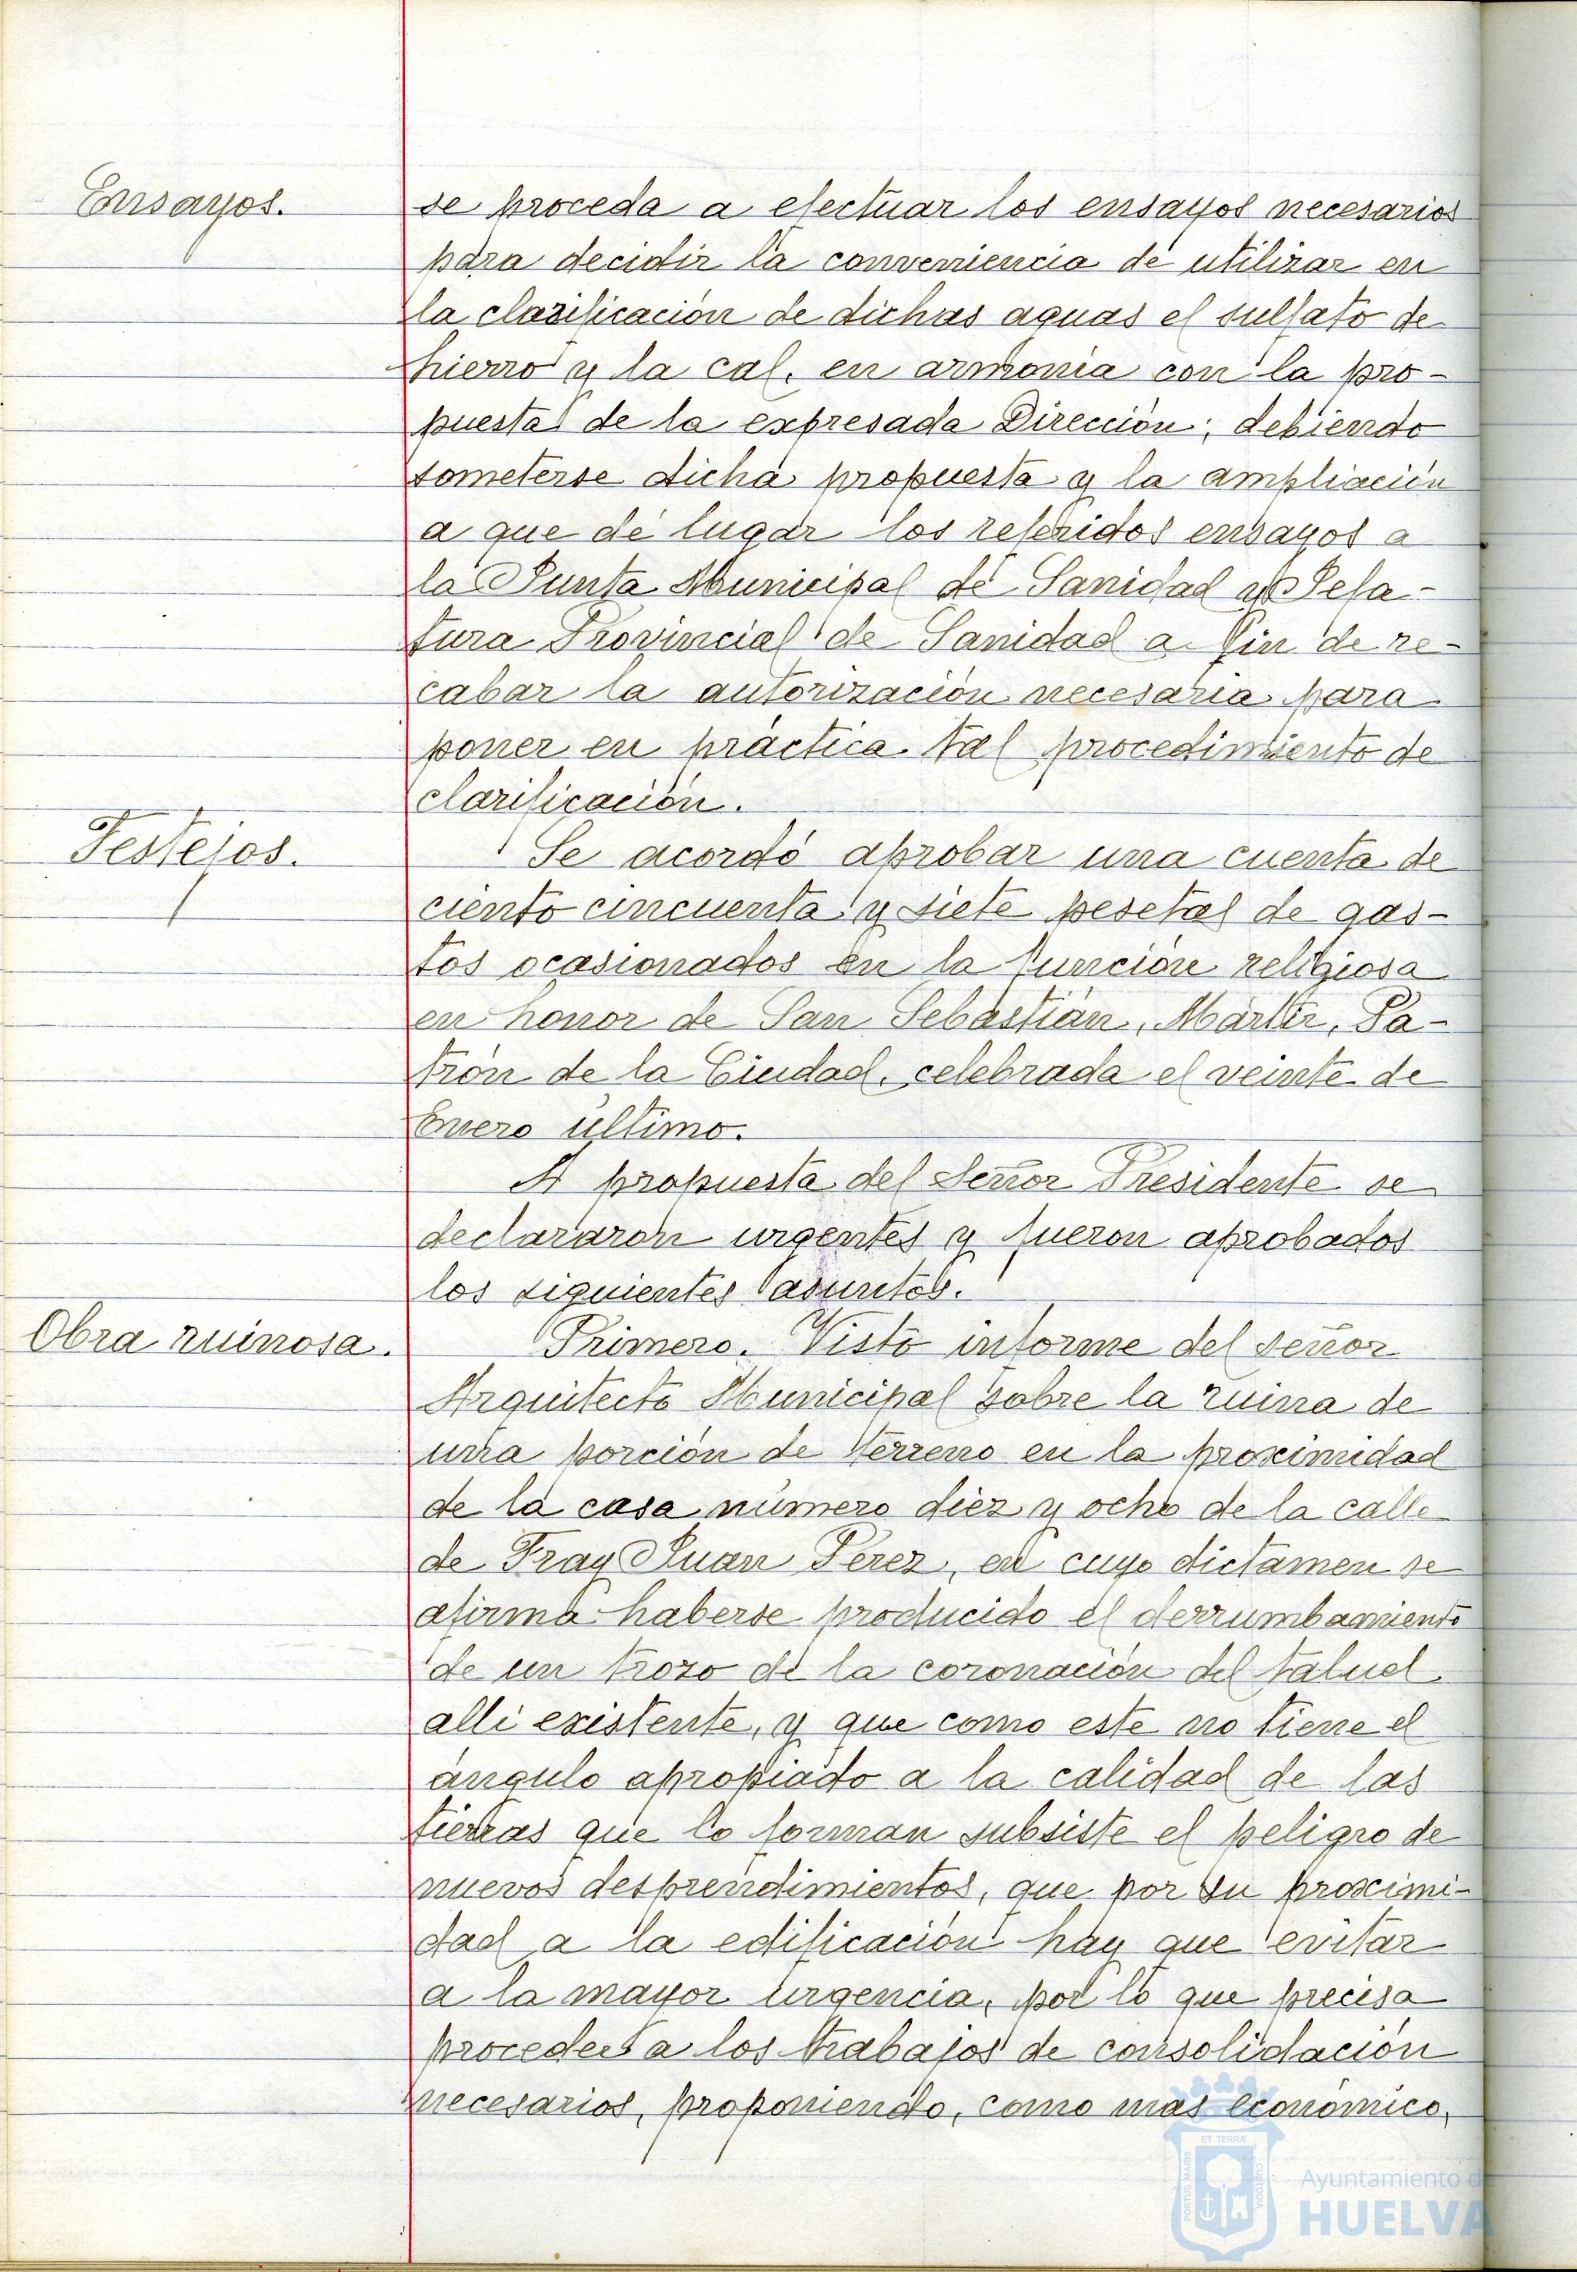 Ensayos.
se proceda a efectuar los ensayos necesarios
para decidir la conveniencia de utilizar en
la clarificación de dichas aguas el sulfato de
hierro y la cal, en armonía con la pro-
puesta de la expresada Dirección; debiendo
someterse dicha propuesta y la ampliación
a que dé lugar los referidos ensayos a
la Junta Municipal de Sanidad y Jefa-
tura Provincial de Sanidad a fin de re-
cabar la autorización necesaria para
poner en práctica tal procedimiento de
clarificación.
Festejos.
Se acordó aprobar una cuenta de
ciento cincuenta y siete pesetas de gas-
tos ocasionados en la función religiosa
en honor de San Sebastián, Mártir, Pa-
trón de la Ciudad, celebrada el veinte de
Enero último.
A propuesta del Señor Presidente se
declararon urgentes y fueron aprobados
los siguientes asuntos.
Obra ruinosa.
Primero. Visto informe del señor
Arquitecto Municipal sobre la ruina de
una porción de terreno en la proximidad
de la casa número diez y ocho de la calle
de Fray Juan Pérez, en cuyo dictamen se
afirma haberse producido el derrumbamiento
de un trozo de la coronación del talud
allí existente, y que como este no tiene el
ángulo apropiado a la calidad de las
tierras que lo forman subsiste el peligro de
nuevos desprendimientos, que por su proximi-
dad a la edificación hay que evitar
a la mayor urgencia, por lo que precisa
proceder a los trabajos de consolidación
necesarios, proponiendo, como mas económico,
ET TERRÆ
PORTUS MARIS
CUSTODIA
Ayuntamiento de
HUELVA